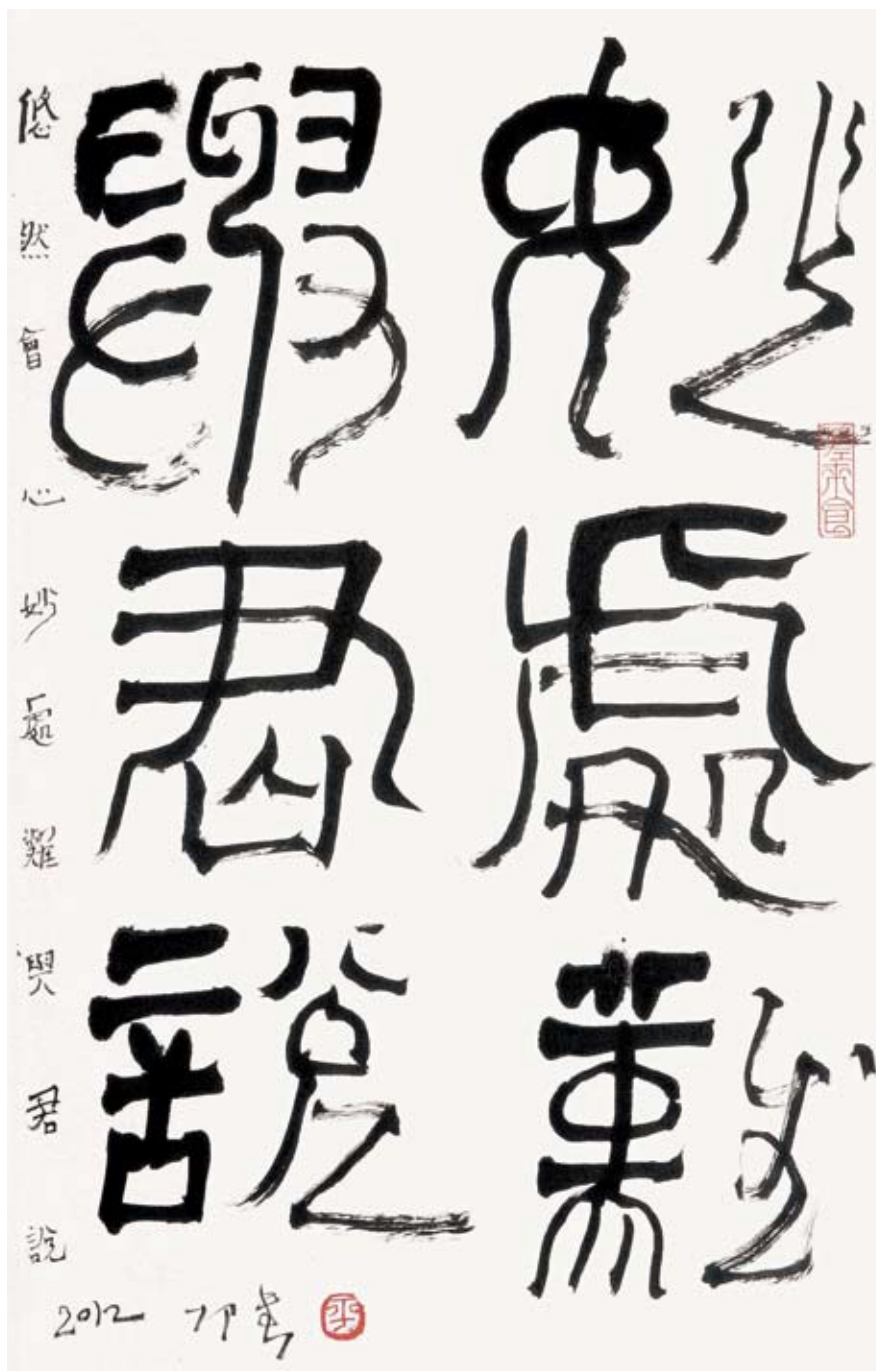 妙處難
與君說
悠然會心妙處難與君說
2012